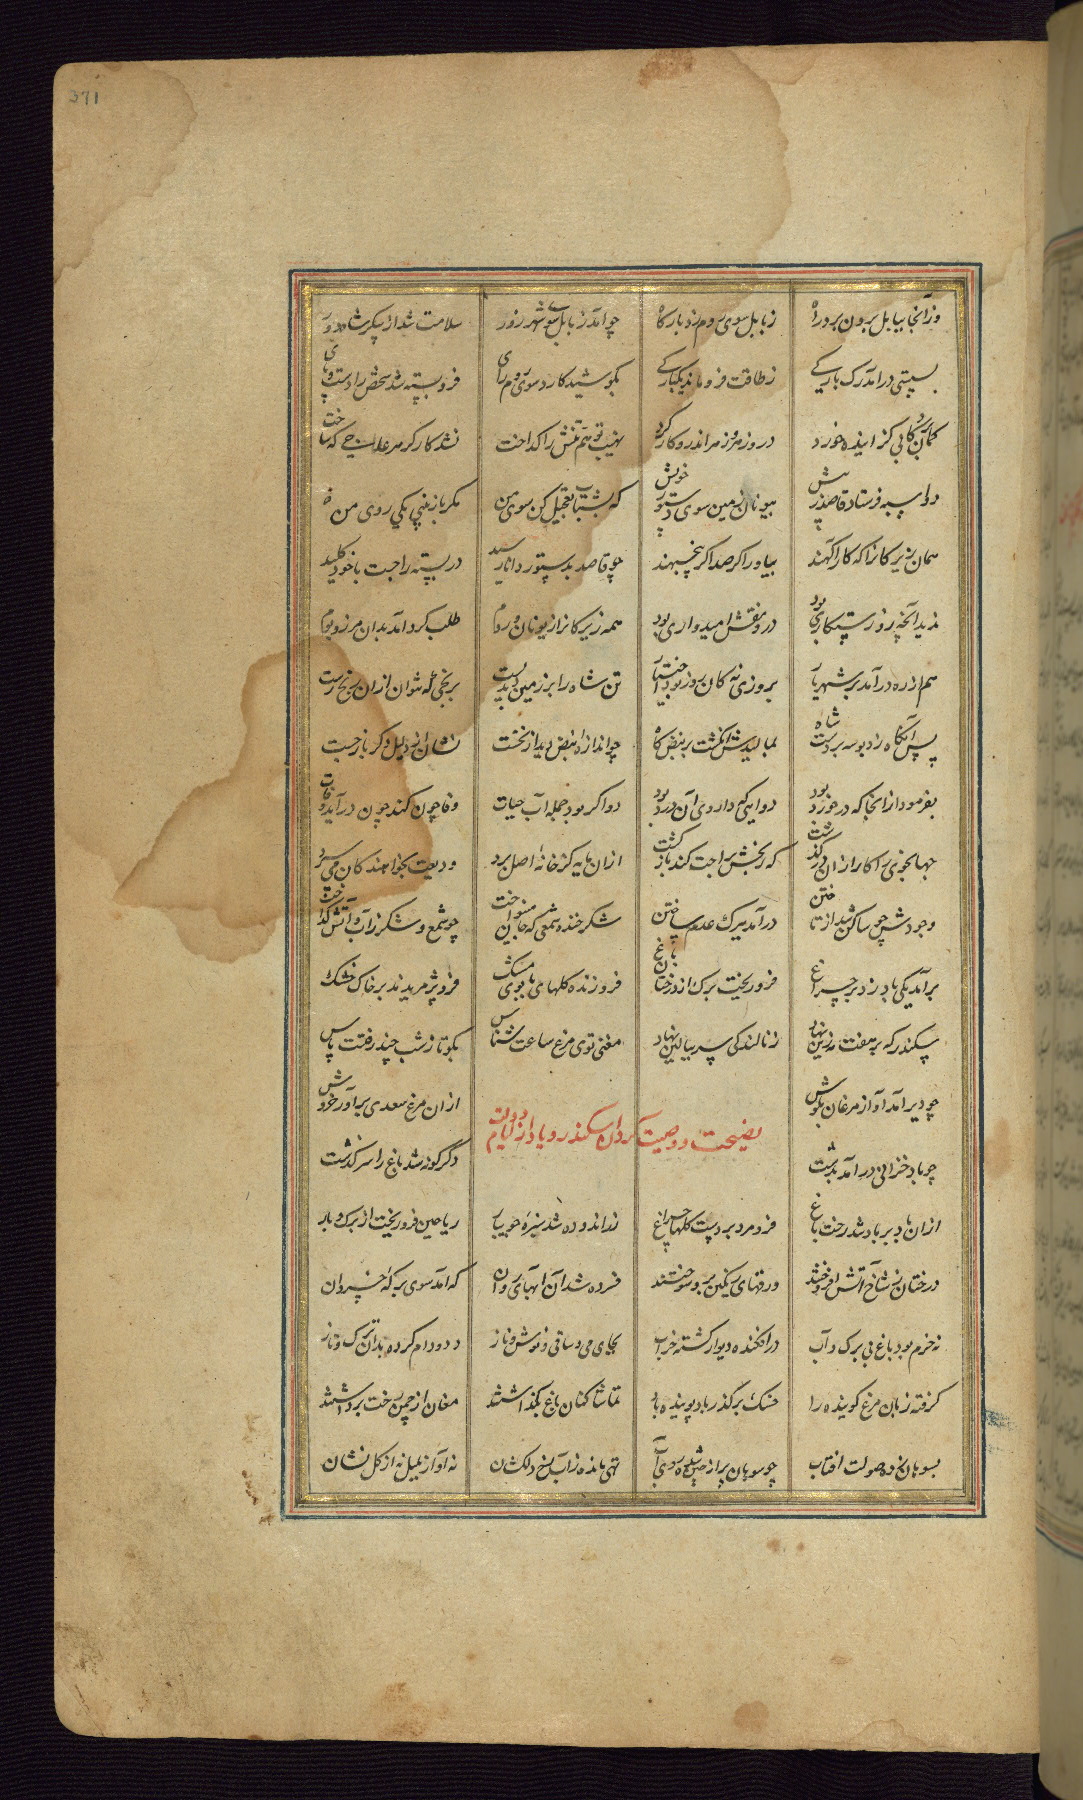 371
وزآنجا ببابل برون برد راه ز بابل سوی روم زد بارگاه چو آمد ز بابل سوی شهرزور سلامت شد از پیکر شاه دور
بسستی درآمد تک بارگی ز طاقت فروماند یکبارگی بکوشید کارد سوی روم رای فروبسته شد شخص را دست و پای
کمان برد کابی گزاینده خورد در و زهر و زهر اندرو کار کرد نهیب توهم تنش را گداخت نشد کارگر هر علاجی که ساخت
دواسپه فرستاد قاصد ز پیش به یونان زمین سوی دستور خویش که بشتاب و تعجیل کن سوی من مگر باز بینی یکی روی من
همان زیرکان را که کارآگهند بیاور اگر صد اگر پنجهند چو قاصد بدستور دانا رسید در بسته را جست با خود کلید
ندید آنچه زو رستگاری بود درو نقش امیدواری بود همه زیرکان را ز یونان و روم طلب کرد و آمد بدان مرز و بوم
هم از ره درآمد بر شهریار بروزی نه کان روز بود اختیار تن شاه را بر زمین دید پست برنجی که نتوان از آن رنج رست
پس آنگاه زد بوسه بر دست شاه بمالید انگشت بر نبض گاه چو اندازه نبض دید از نخست نشان از دلیل دگر باز جست
بفرمود از آنجا که درخورد بود دوایی که داروی آن درد بود دوا گر بود جمله آب حیات وفا چون کند چون درآید وفات
جهانجوی را کار از آن درگذشت که رنجش براحت کند بازگشت از آن مایه کز خانه اصل برد ودیعت بخواهندگان می سپرد
وجودش چو ساکن شد از تاختن درآمد به برگ عدم ساختن شکر خنده شمعی که جان می نواخت چو شمع و شکر ز آب و آتش گداخت
برآمد یکی باد زد بر چراغ فرو ریخت برگ از درختان باغ فروزنده گلهای با بوی مشک فرو پژمریدند بر خاک خشک
سکندر که بر سفت مه زین نهاد ز نالندگی سر ببالین نهاد مغنی توی مرغ ساعت شناس بگو تا ز شب چند رفتست پاس
چو دیر آمد آواز مرغان بگوش از آن مرغ سعدی برآور خروش
نصیحت و وصیت کردن اسکندر و یاد از دولت ایام
چو باد خزانی درآمد بدشت دگرگونه شد باغ را سرگذشت
از آن باد بر باد شد رخت باغ فرو مرد بر دست گلها چراغ زراندوده شد سبزه جویبار ریاحین فرو ریخت از برگ و بار
درختان ز شاخ آتش افروختند ورقهای رنگین برو سوختند فسرده شد آن آبهای روان که آمد سوی برکه خسروان
نه خرم بود باغ بی برگ و آب درافکنده دیوار گشته خراب بجای می و ساقی و نوش و ناز دد و دام کرده بدان ترک و تاز
گرفته زبان مرغ گوینده را خسک بر گذر باد پوینده را تماشاکنان باغ بگذاشتند مغان از چمن رخت برداشتند
بسوهان زده صولت آفتاب چو سوهان پر از چین شده روی آب تهی مانده ز آب رخ دلکشان نه آواز بلبل نه از گل نشان